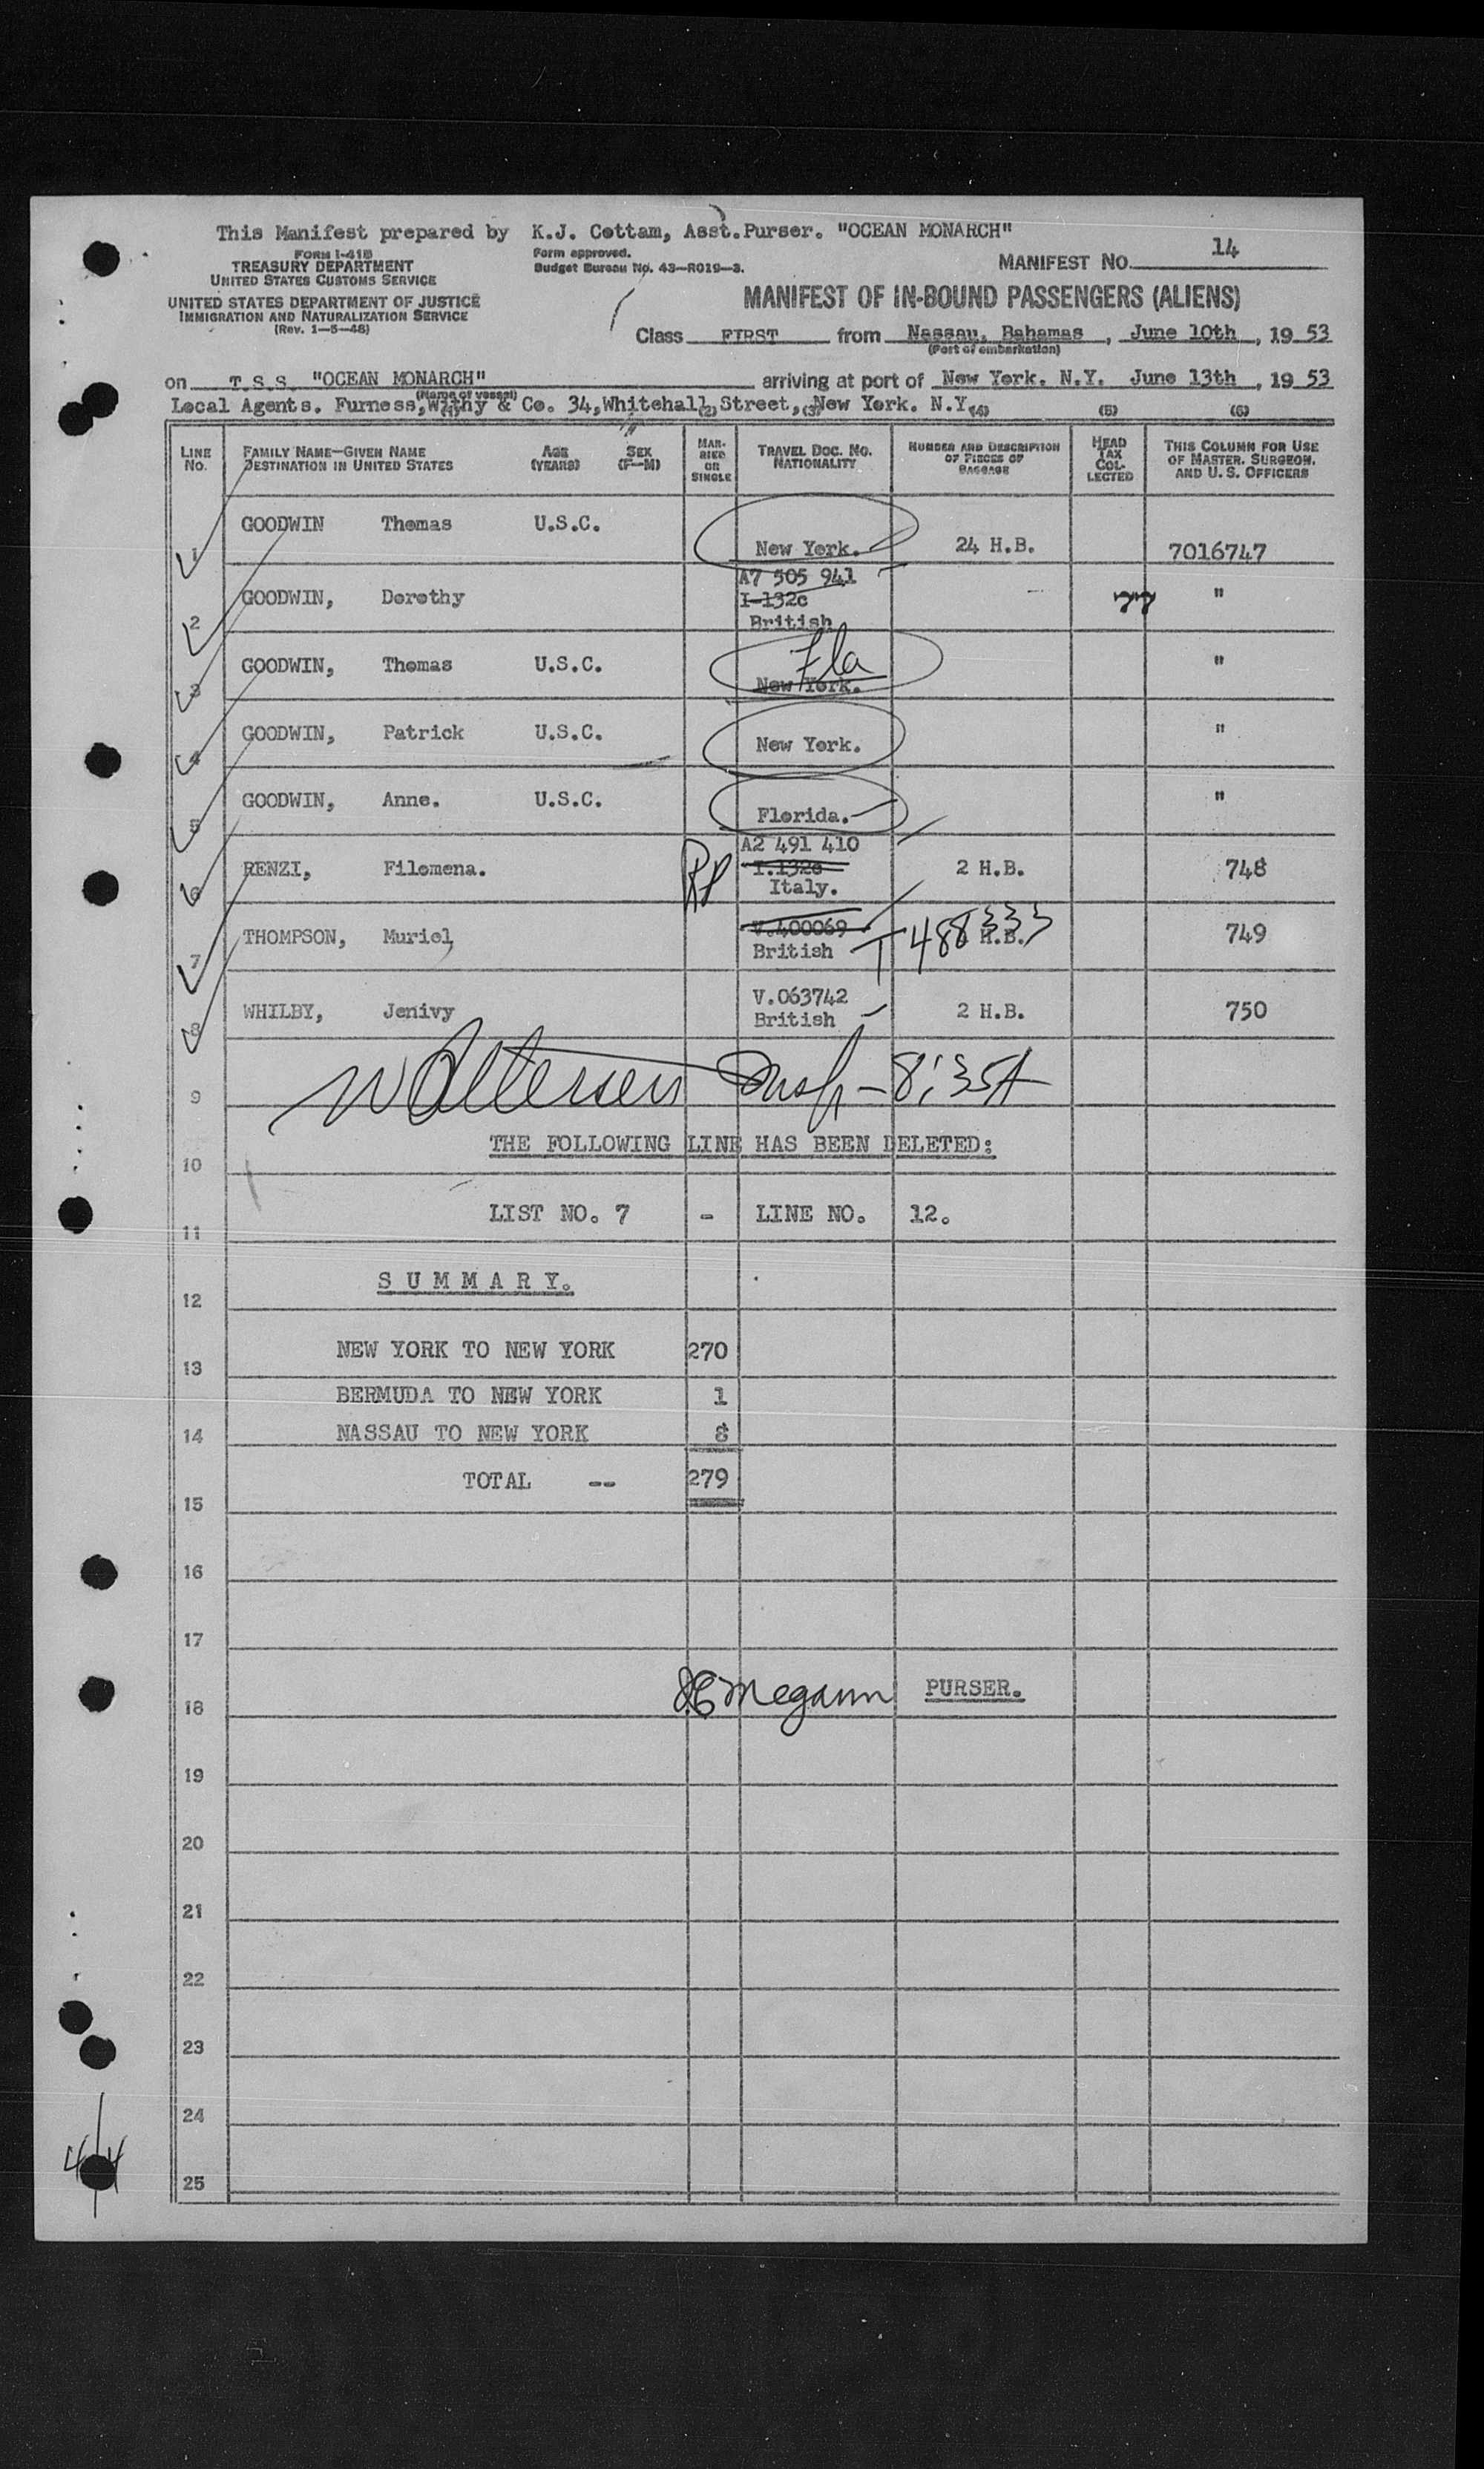 This Manifest prepared by K.J. Cottam, Asst.Purser. "OCEAN MONARCH"
FORM I-418
TREASURY DEPARTMENT
UNITED STATES CUSTOMS SERVICE
UNITED STATES DEPARTMENT OF JUSTICE
IMMIGRATION AND NATURALIZATION SERVICE
(Rev. 1-5-48)
Form approved.
Budget Bureau No. 43-R019-3.
MANIFEST NO. 14
MANIFEST OF IN-BOUND PASSENGERS (ALIENS)
Class FIRST from Nassau, Bahamas, June 10th, 19 53
(Port of embarkation)
on T.S.S. "OCEAN MONARCH" arriving at port of New York. N.Y. June 13th, 19 53
(Name of vessel)
Local Agents. Furness, Withy & Co. 34, Whitehall Street, New York. N.Y.
(1) (2) (3) (4) (5) (6)
LINE NO. FAMILY NAME—GIVEN NAME DESTINATION IN UNITED STATES AGE (YEARS) SEX (F—M) MARRIED OR SINGLE TRAVEL DOC. NO. NATIONALITY NUMBER AND DESCRIPTION OF PIECES OF BAGGAGE HEAD TAX COLLECTED THIS COLUMN FOR USE OF MASTER, SURGEON, AND U. S. OFFICERS
1 GOODWIN Thomas U.S.C. New York. 24 H.B. 7016747
2 GOODWIN, Dorothy A7 505 941 I-132c British "
3 GOODWIN, Thomas U.S.C. Fla New York. "
4 GOODWIN, Patrick U.S.C. New York. "
5 GOODWIN, Anne. U.S.C. Florida. "
6 RENZI, Filomena. RP A2 491 410 I.132c Italy. 2 H.B. 748
7 THOMPSON, Muriel V.400069 British T488333 H.B. 749
8 WHILBY, Jenivy V.063742 British 2 H.B. 750
9 Insp - 8:35A
10 THE FOLLOWING LINE HAS BEEN DELETED:
11 LIST NO. 7 - LINE NO. 12.
12 SUMMARY.
13 NEW YORK TO NEW YORK 270
BERMUDA TO NEW YORK 1
14 NASSAU TO NEW YORK 8
15 TOTAL -- 279
16
17
18 Megann PURSER.
19
20
21
22
23
24
25
44